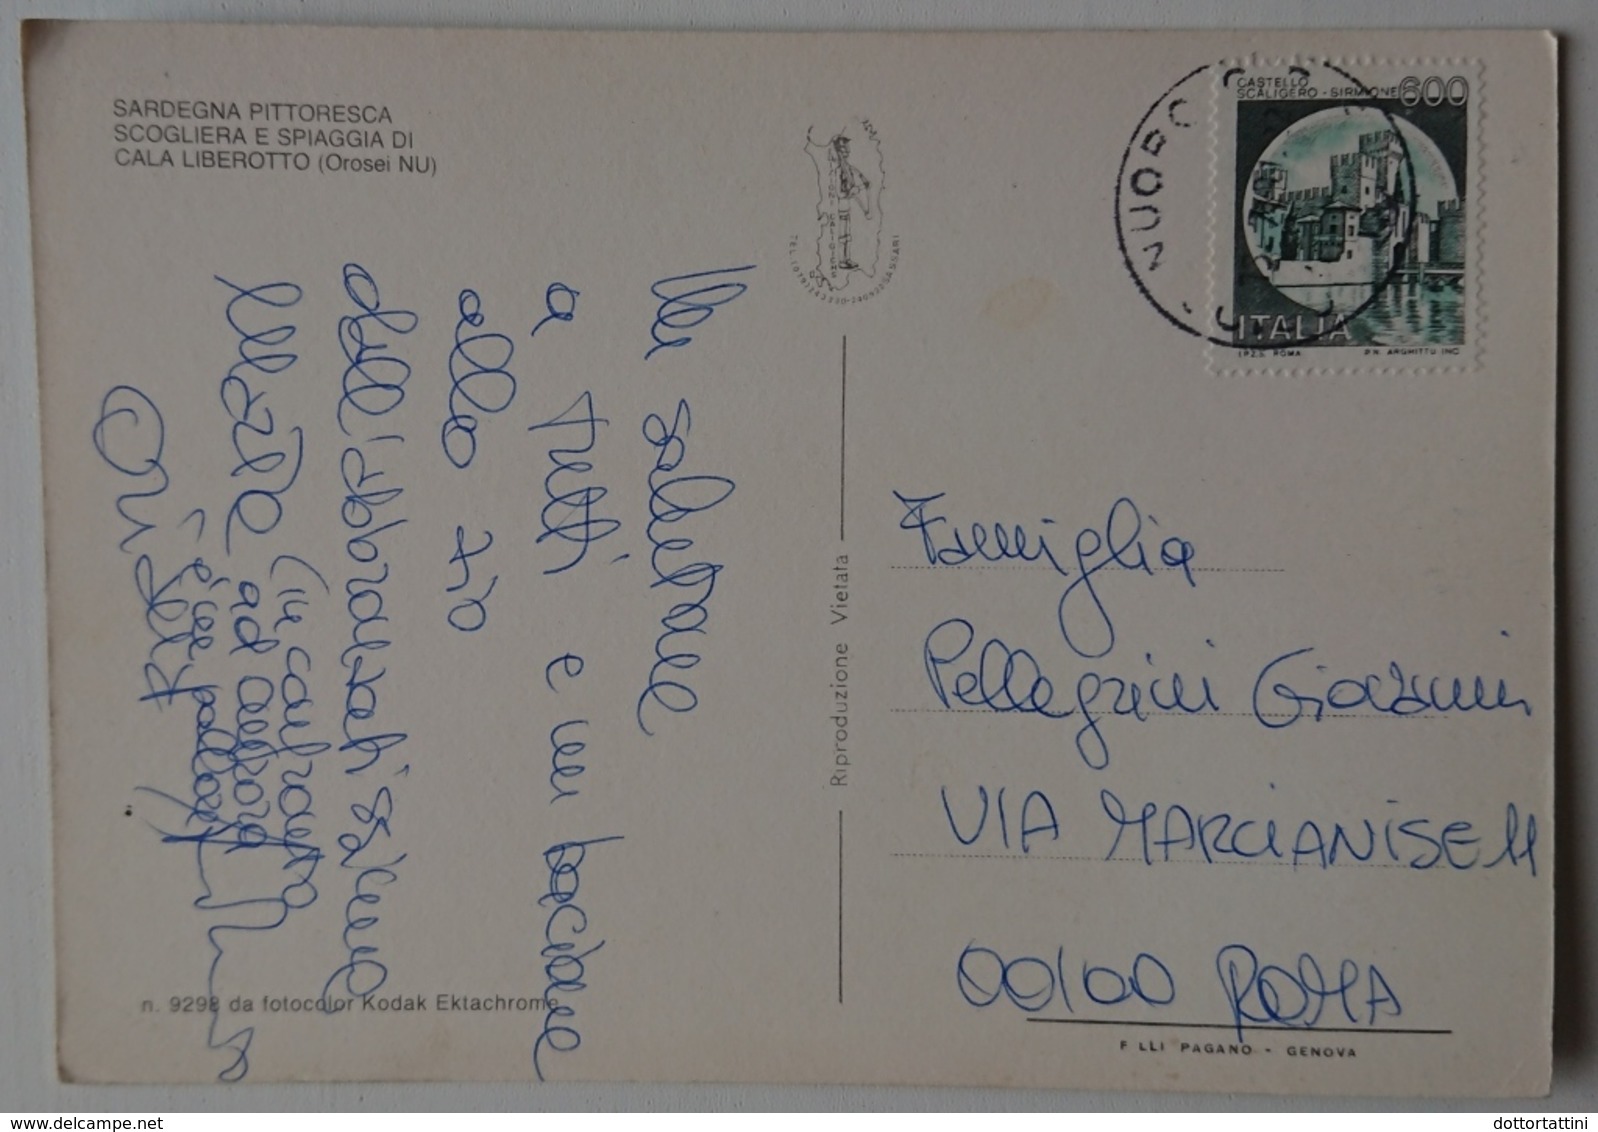 SARDEGNA PITTORESCA
SCOGLIERA E SPIAGGIA DI
CALA LIBEROTTO (Orosei NU)
Un salutone
a tutti e un bacione
allo zio
dall'abbronzati'ssimo
(in confronto
ad
è un
n. 9298 da fotocolor Kodak Ektachrome
Riproduzione Vietata
SASSARI
NUORO
CASTELLO
SCALIGERO - SIRMIONE 600
ITALIA
I.P.Z.S. ROMA P.N. ARGHITTU INC
Famiglia
Pellegrini Giovanni
VIA MARCIANISE 11
00100 ROMA
F LLI PAGANO - GENOVA
dottortattini